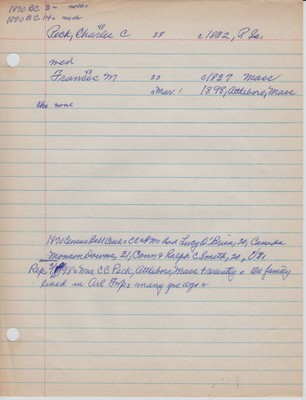 1870 BC B-
1880 BC H-
Peck, Charles C 38 c1832, R Is.
med
Frances M 33 c1837 Mass
Mar 1898, Attleboro, Mass
chn none
1870 Census Bell Creek CC & Fm had Lucy O'Brien, 20, Canada
Monson Downs, 21, Conn & Ralph C Smith, 20, Vt.
Rep 98 Mrs CC Peck, Attleboro, Mass recently. The family
lived in Arl Twp many yrs ago.